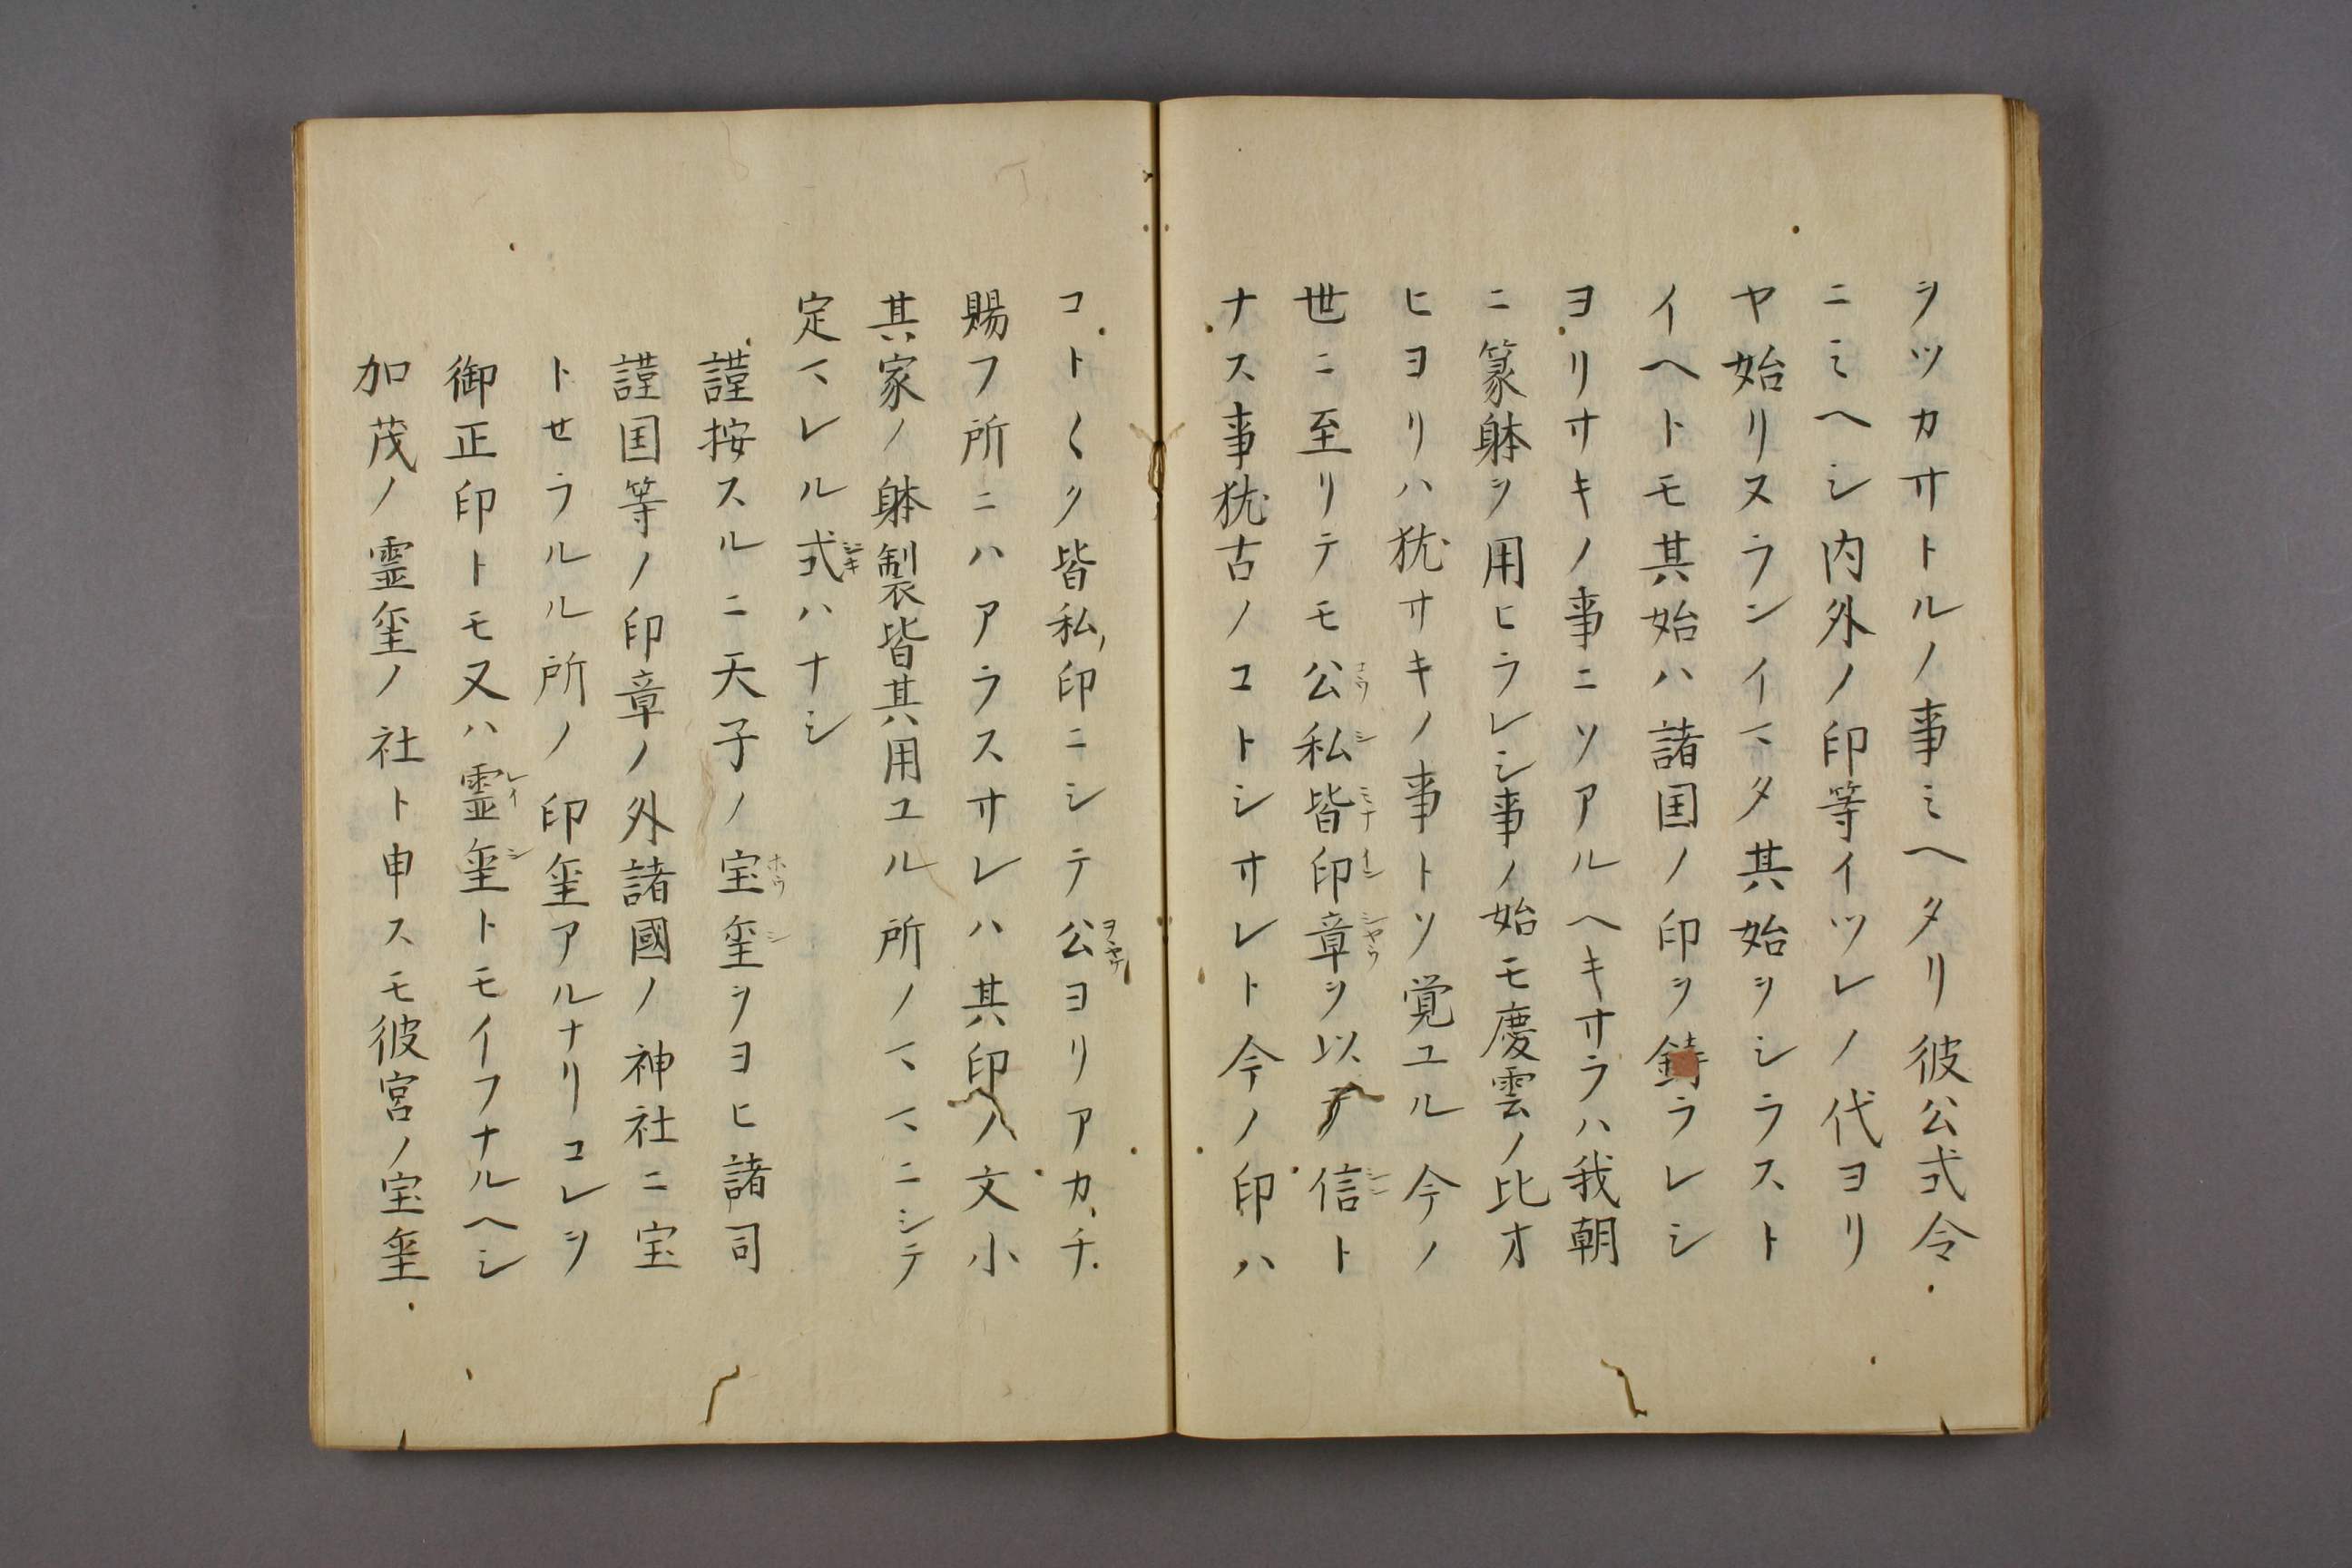 ヲツカサトルノ事ミヘタリ彼公式令
ニミヘシ内外ノ印等イツレノ代ヨリ
ヤ始リヌランイマタ其始ヲシラスト
イヘトモ其始ハ諸国ノ印ヲ鋳ラレシ
ヨリサキノ事ニソアルヘキサラハ我朝
ニ篆躰ヲ用ヒラレシ事ノ始モ慶雲ノ比オ
ヒヨリハ犹サキノ事トソ覚ユル今ノ
世ニ至リテモ公私皆印章ヲ以テ信ト
ナス事犹古ノコトシサレト今ノ印ハ
コト〱ク皆私ノ印ニシテ公ヨリアカチ
賜フ所ニハアラスサレハ其印ノ文小
其家ノ躰製皆其用ユル所ノマヽニシテ
定マレル式ハナシ
謹按スルニ天子ノ宝璽ヲヨヒ諸司
謹国等ノ印章ノ外諸國ノ神社ニ宝
トせラルル所ノ印璽アルナリコレヲ
御正印トモ又ハ霊璽トモイフナルヘシ
加茂ノ霊璽ノ社ト申スモ彼宮ノ宝璽